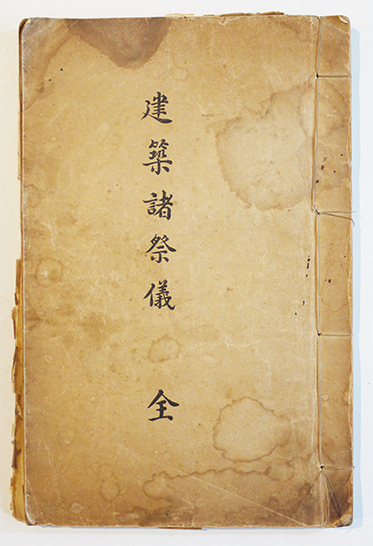 建築諸祭儀 全